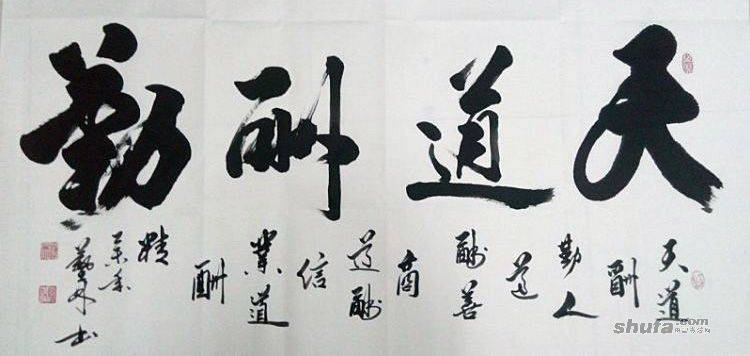 天道酬勤
天道
酬
勤人
道
酬善
商
道酬
信
業道
酬
精
书
shufa.com